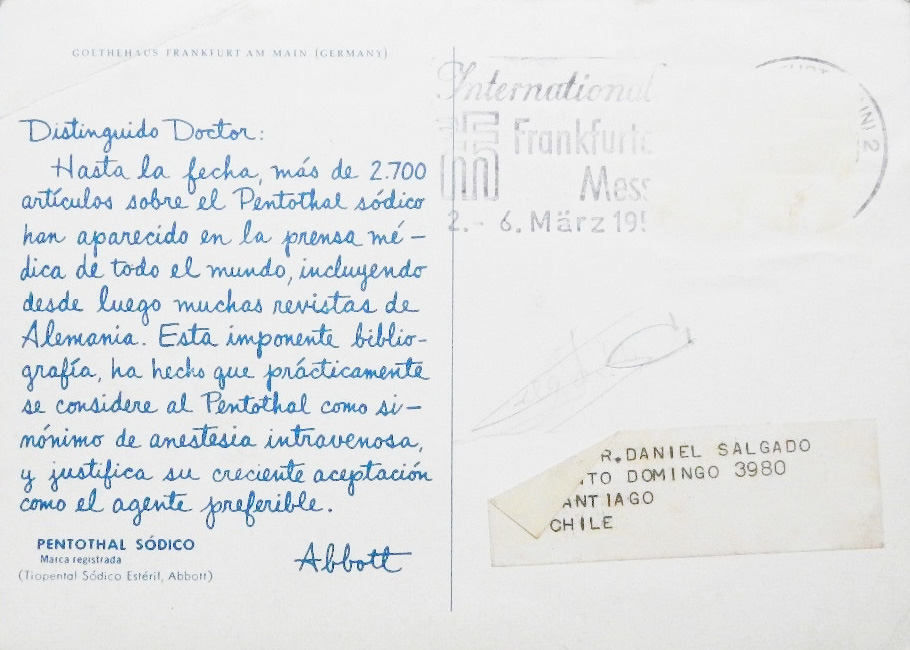 GOETHEHAUS FRANKFURT AM MAIN (GERMANY)
Distinguido Doctor:
Hasta la fecha, más de 2.700
artículos sobre el Pentothal sódico
han aparecido en la prensa mé-
dica de todo el mundo, incluyendo
desde luego muchas revistas de
Alemania. Esta imponente biblio-
grafía, ha hecho que prácticamente
se considere al Pentothal como si-
nónimo de anestesia intravenosa,
y justifica su creciente aceptación
como el agente preferible.
Abbott
PENTOTHAL SÓDICO
Marca registrada
(Tiopental Sódico Estéril, Abbott)
International
Frankfurte
Mess
2.- 6. März 195
IN) 2
R. DANIEL SALGADO
TO DOMINGO 3980
ANTIAGO
CHILE